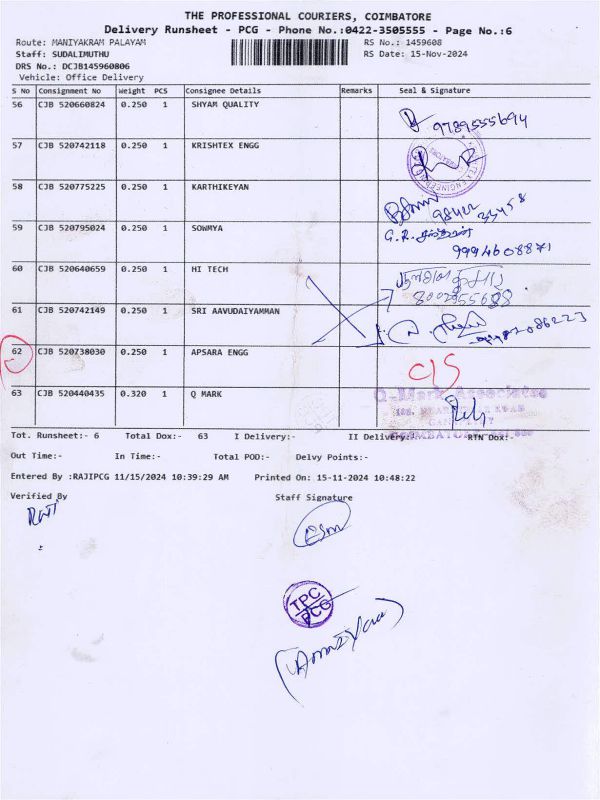 THE PROFESSIONAL COURIERS, COIMBATORE
Delivery Runsheet - PCG - Phone No.:0422-3505555 - Page No.:6
Route: MANIYAKRAM PALAYAM RS No.: 1459608
Staff: SUDALIMUTHU RS Date: 15-Nov-2024
DRS No.: DCJB145960806
Vehicle: Office Delivery
S No Consignment No Weight PCS Consignee Details Remarks Seal & Signature
56 CJB 520660824 0.250 1 SHYAM QUALITY
9789555694
57 CJB 520742118 0.250 1 KRISHTEX ENGG
58 CJB 520775225 0.250 1 KARTHIKEYAN
98422 33458
59 CJB 520795024 0.250 1 SOWMYA G.R.
9994608871
60 CJB 520640659 0.250 1 HI TECH
61 CJB 520742149 0.250 1 SRI AAVUDAIYAMMAN
62 CJB 520738030 0.250 1 APSARA ENGG C/S
63 CJB 520440435 0.320 1 Q MARK
Q-Mark Associates
COIMBATORE
Tot. Runsheet:- 6 Total Dox:- 63 I Delivery:- II Delivery:- RTN Dox:-
Out Time:- In Time:- Total POD:- Delvy Points:-
Entered By :RAJIPCG 11/15/2024 10:39:29 AM Printed On: 15-11-2024 10:48:22
Verified By Staff Signature
TPC
PCG